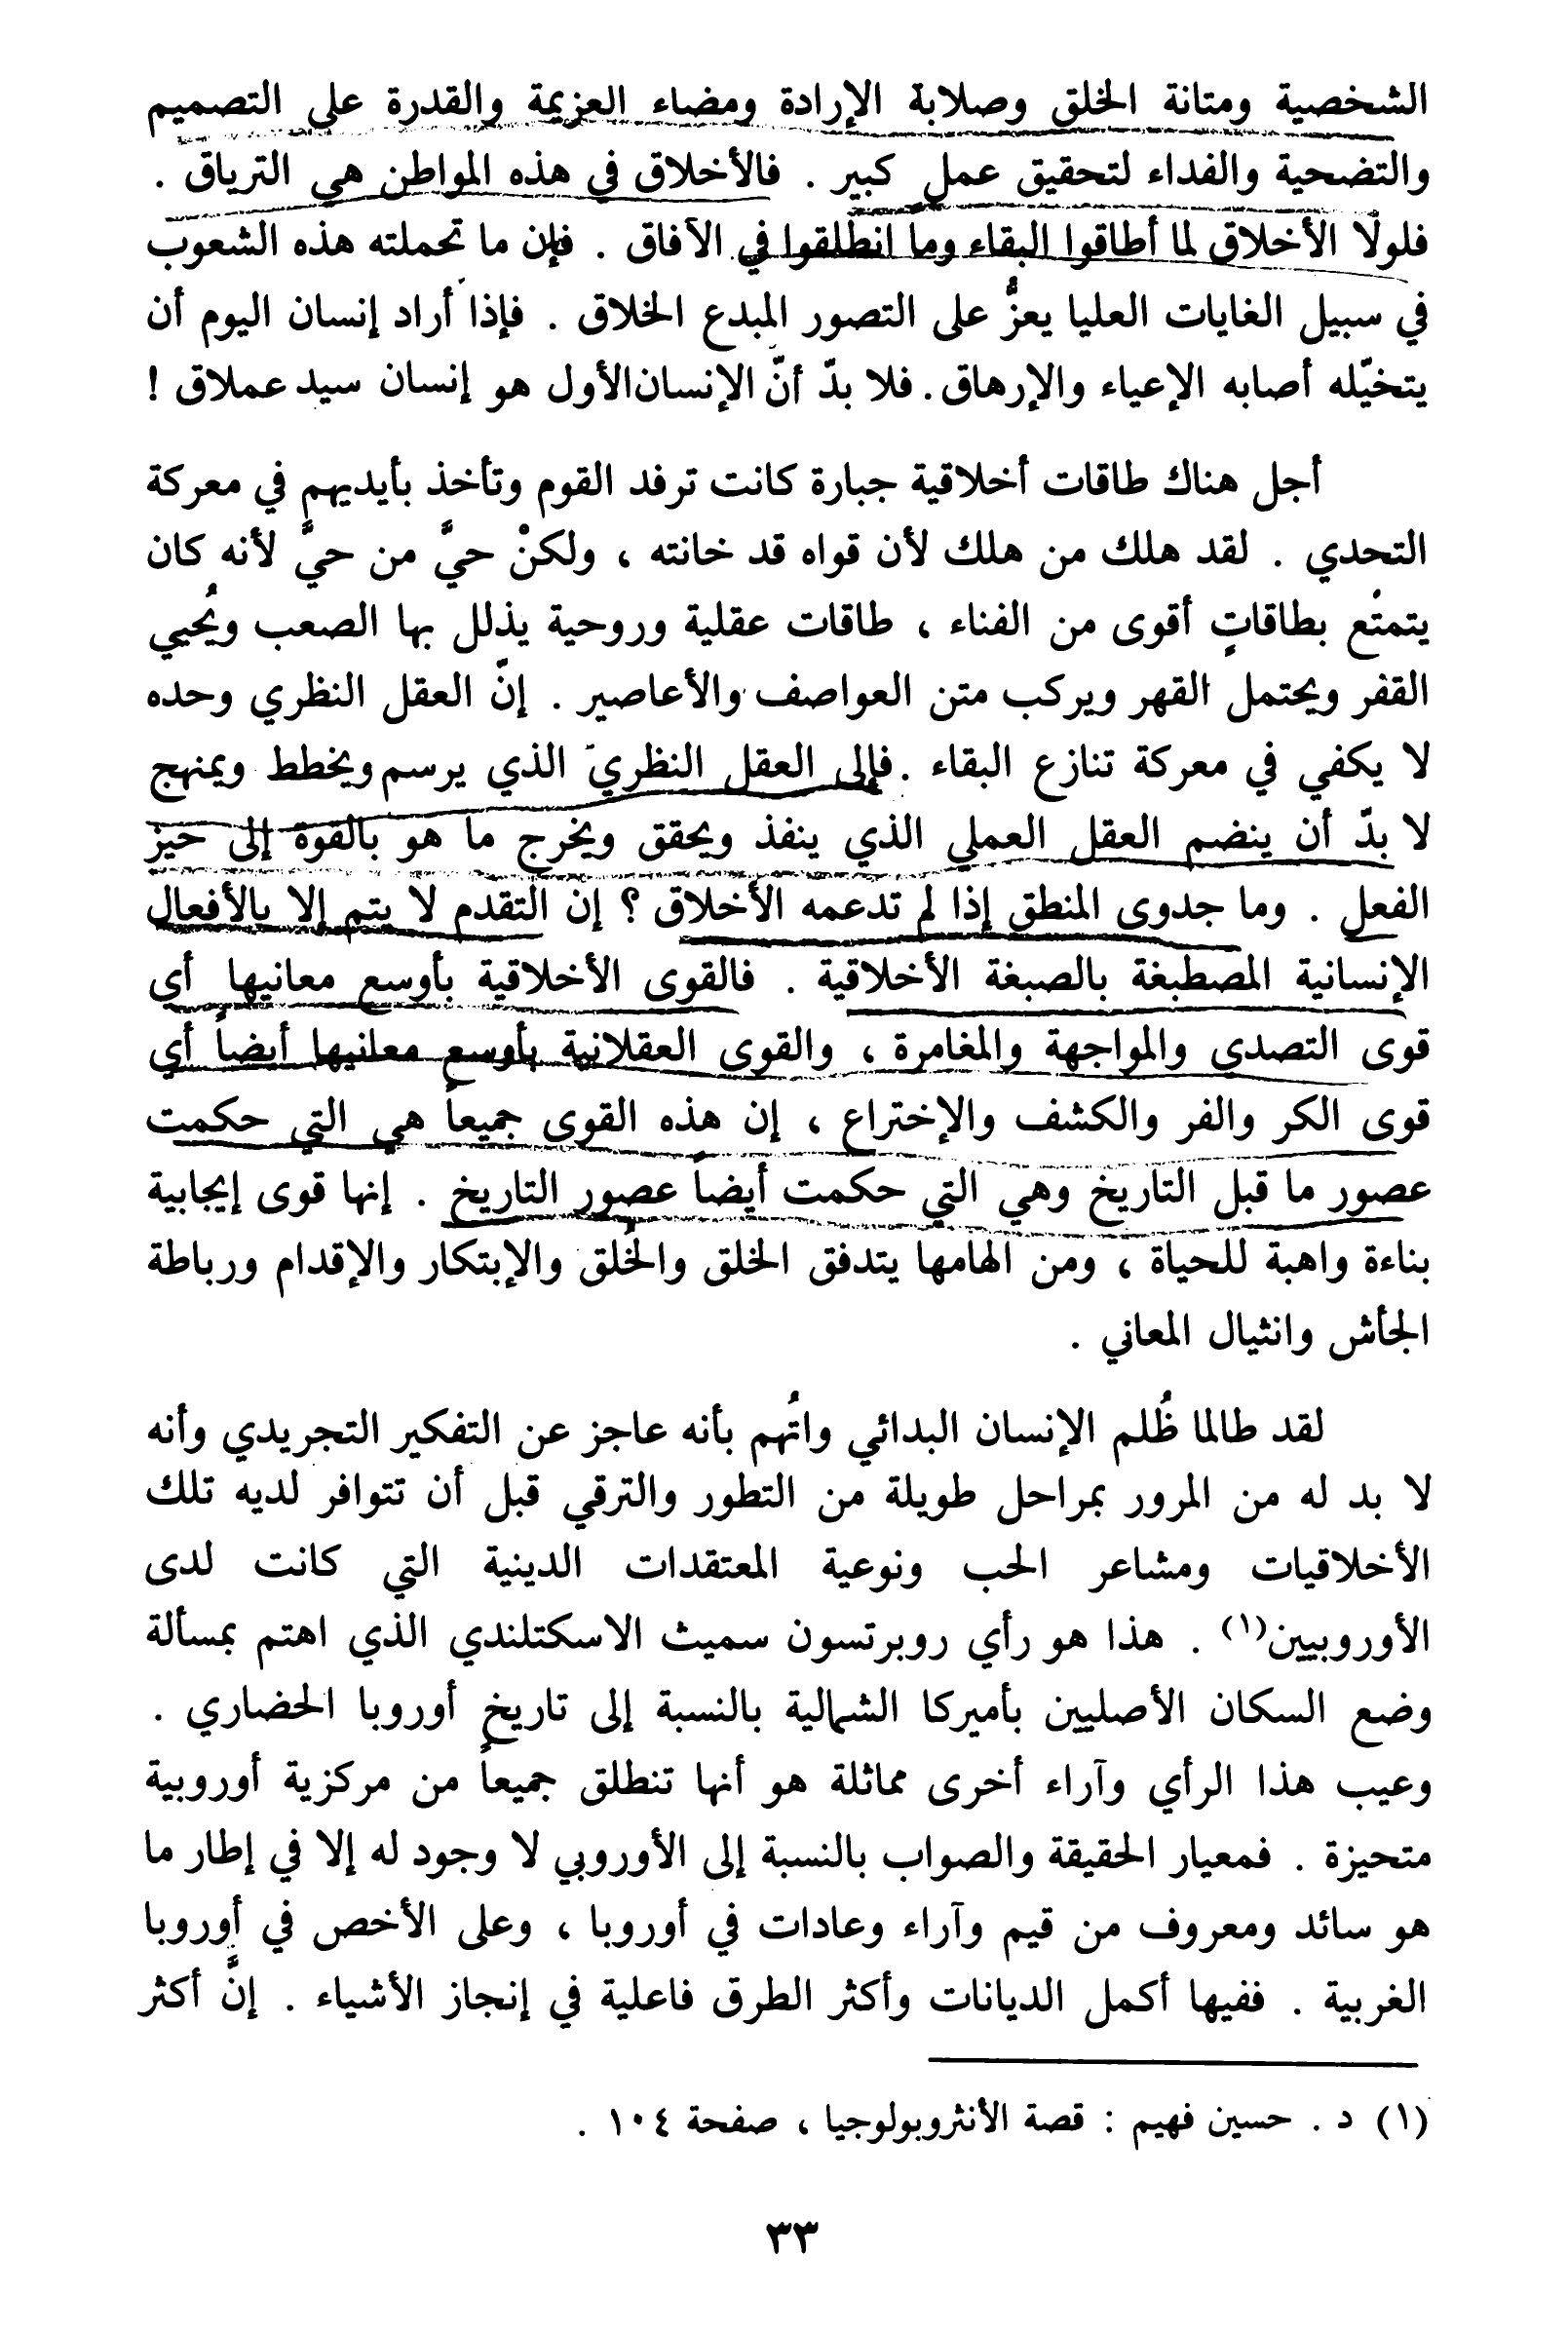 الشخصية ومتانة الخلق وصلابة الإرادة ومضاء العزيمة والقدرة على التصميم
والتضحية والفداء لتحقيق عمل كبير . فالأخلاق في هذه المواطن هي الترياق .
فلولا الأخلاق لما أطاقوا البقاء وما انطلقوا في الآفاق . فإن ما تحملته هذه الشعوب
في سبيل الغايات العليا يعزُّ على التصور المبدع الخلاق . فإذا أراد إنسان اليوم أن
يتخيّله أصابه الإعياء والإرهاق . فلا بدّ أنّ الإنسان الأول هو إنسان سيد عملاق !
أجل هناك طاقات أخلاقية جبارة كانت ترفد القوم وتأخذ بأيديهم في معركة
التحدي . لقد هلك من هلك لأن قواه قد خانته ، ولكنْ حيَّ من حيَّ لأنه كان
يتمتع بطاقاتٍ أقوى من الفناء ، طاقات عقلية وروحية يذلل بها الصعب ويُحيي
القفر ويحتمل القهر ويركب متن العواصف والأعاصير . إنّ العقل النظري وحده
لا يكفي في معركة تنازع البقاء . فإلى العقل النظري الذي يرسم ويخطط ويمنهج
لا بدّ أن ينضم العقل العملي الذي ينفذ ويحقق ويخرج ما هو بالقوة إلى حيز
الفعل . وما جدوى المنطق إذا لم تدعمه الأخلاق ؟ إن التقدم لا يتم إلا بالأفعال
الإنسانية المصطبغة بالصبغة الأخلاقية . فالقوى الأخلاقية بأوسع معانيها أي
قوى التصدي والمواجهة والمغامرة ، والقوى العقلانية بأوسع معانيها أيضاً أي
قوى الكر والفر والكشف والإختراع ، إن هذه القوى جميعاً هي التي حكمت
عصور ما قبل التاريخ وهي التي حكمت أيضاً عصور التاريخ . إنها قوى إيجابية
بناءة واهبة للحياة ، ومن الهامها يتدفق الخلق والخُلق والإبتكار والإقدام ورباطة
الجأش وانثيال المعاني .
لقد طالما ظُلم الإنسان البدائي واتُهم بأنه عاجز عن التفكير التجريدي وأنه
لا بد له من المرور بمراحل طويلة من التطور والترقي قبل أن تتوافر لديه تلك
الأخلاقيات ومشاعر الحب ونوعية المعتقدات الدينية التي كانت لدى
الأوروبيين(١) . هذا هو رأي روبرتسون سميث الاسكتلندي الذي اهتم بمسألة
وضع السكان الأصليين بأميركا الشمالية بالنسبة إلى تاريخ أوروبا الحضاري .
وعيب هذا الرأي وآراء أخرى مماثلة هو أنها تنطلق جميعاً من مركزية أوروبية
متحيزة . فمعيار الحقيقة والصواب بالنسبة إلى الأوروبي لا وجود له إلا في إطار ما
هو سائد ومعروف من قيم وآراء وعادات في أوروبا ، وعلى الأخص في أوروبا
الغربية . ففيها أكمل الديانات وأكثر الطرق فاعلية في إنجاز الأشياء . إنَّ أكثر
(١) د . حسين فهيم : قصة الأنثروبولوجيا ، صفحة ١٠٤ .
٣٣